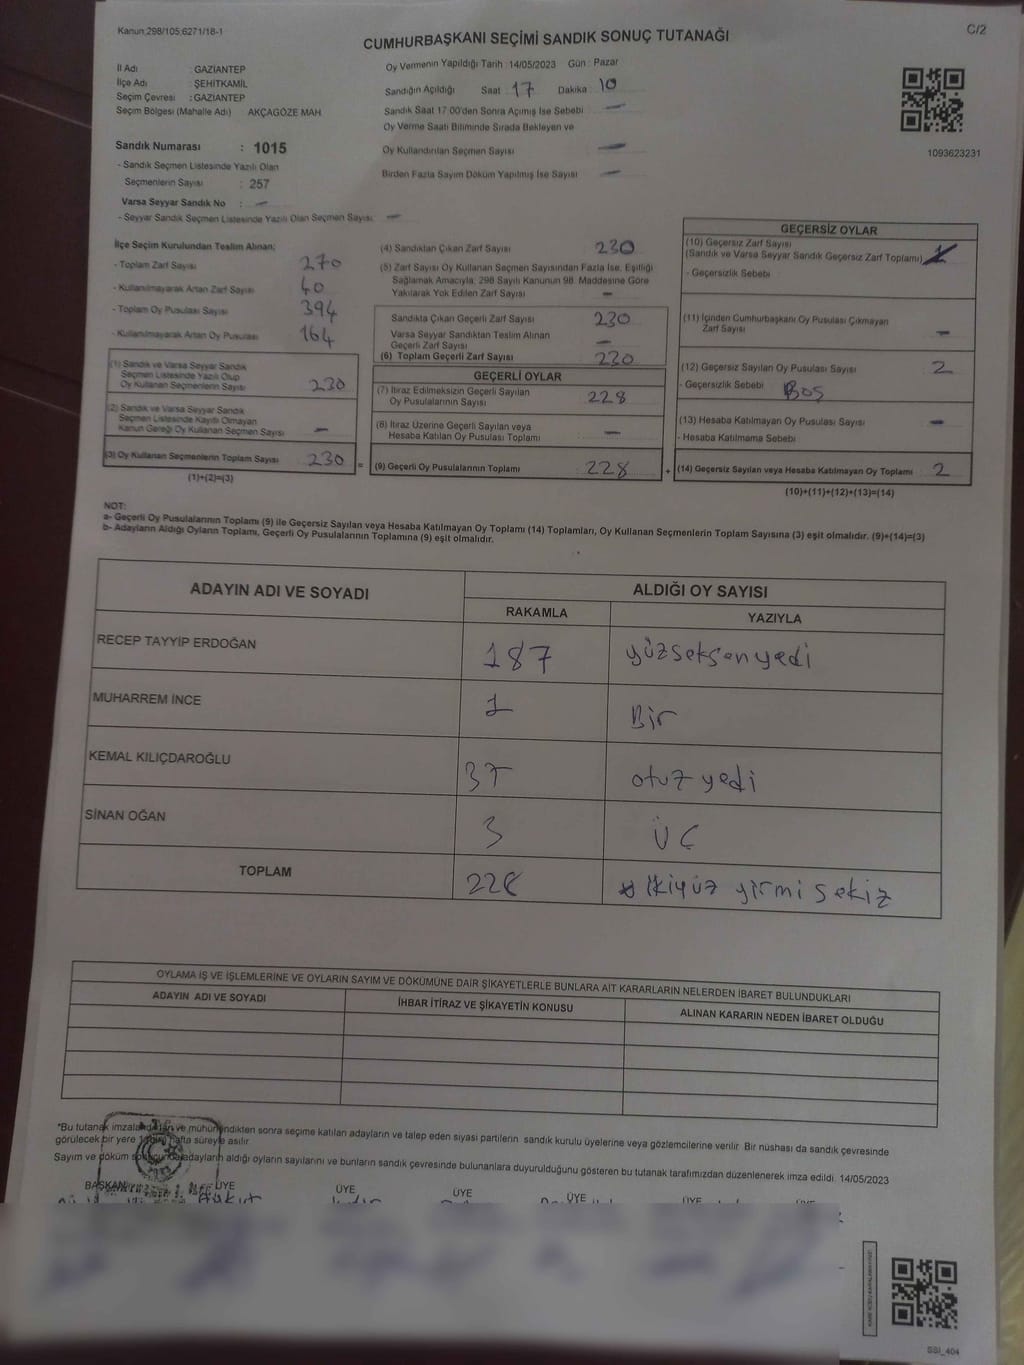 Kanun;298/105;6271/18-1
C/2
CUMHURBAŞKANI SEÇİMİ SANDIK SONUÇ TUTANAĞI
İl Adı : GAZİANTEP
İlçe Adı : ŞEHİTKAMİL
Seçim Çevresi : GAZİANTEP
Seçim Bölgesi (Mahalle Adı) AKÇAGÖZE MAH
Oy Vermenin Yapıldığı Tarih :14/05/2023 Gün : Pazar
Sandığın Açıldığı Saat 17 Dakika 10
Sandık Saat 17:00'den Sonra Açımış İse Sebebi —
Oy Verme Saati Bitiminde Sırada Bekleyen ve
Oy Kullandırılan Seçmen Sayısı —
Birden Fazla Sayım Döküm Yapılmış İse Sayısı —
1093623231
Sandık Numarası : 1015
- Sandık Seçmen Listesinde Yazılı Olan
Seçmenlerin Sayısı : 257
Varsa Seyyar Sandık No : —
- Seyyar Sandık Seçmen Listesinde Yazılı Olan Seçmen Sayısı: —
İlçe Seçim Kurulundan Teslim Alınan;
- Toplam Zarf Sayısı 270
- Kullanılmayarak Artan Zarf Sayısı 40
- Toplam Oy Pusulası Sayısı 394
- Kullanılmayarak Artan Oy Pusulası 164
(1) Sandık ve Varsa Seyyar Sandık
Seçmen Listesinde Yazılı Olup
Oy Kullanan Seçmenlerin Sayısı 230
(2) Sandık ve Varsa Seyyar Sandık
Seçmen Listesinde Kayıtlı Olmayan
Kanun Gereği Oy Kullanan Seçmen Sayısı —
(3) Oy Kullanan Seçmenlerin Toplam Sayısı 230 =
(1)+(2)=(3)
(4) Sandıktan Çıkan Zarf Sayısı 230
(5) Zarf Sayısı Oy Kullanan Seçmen Sayısından Fazla İse, Eşitliği
Sağlamak Amacıyla; 298 Sayılı Kanunun 98. Maddesine Göre
Yakılarak Yok Edilen Zarf Sayısı —
Sandıkta Çıkan Geçerli Zarf Sayısı 230
Varsa Seyyar Sandıktan Teslim Alınan
Geçerli Zarf Sayısı —
(6) Toplam Geçerli Zarf Sayısı 230
GEÇERLİ OYLAR
(7) İtiraz Edilmeksizin Geçerli Sayılan
Oy Pusulalarının Sayısı 228
(8) İtiraz Üzerine Geçerli Sayılan veya
Hesaba Katılan Oy Pusulası Toplamı —
(9) Geçerli Oy Pusulalarının Toplamı : 228 +
GEÇERSİZ OYLAR
(10) Geçersiz Zarf Sayısı
(Sandık ve Varsa Seyyar Sandık Geçersiz Zarf Toplamı)
- Geçersizlik Sebebi
(11) İçinden Cumhurbaşkanı Oy Pusulası Çıkmayan
Zarf Sayısı —
(12) Geçersiz Sayılan Oy Pusulası Sayısı 2
- Geçersizlik Sebebi Boş
(13) Hesaba Katılmayan Oy Pusulası Sayısı —
- Hesaba Katılmama Sebebi
(14) Geçersiz Sayılan veya Hesaba Katılmayan Oy Toplamı 2
(10)+(11)+(12)+(13)=(14)
NOT:
a- Geçerli Oy Pusulalarının Toplamı (9) ile Geçersiz Sayılan veya Hesaba Katılmayan Oy Toplamı (14) Toplamları, Oy Kullanan Seçmenlerin Toplam Sayısına (3) eşit olmalıdır. (9)+(14)=(3)
b- Adayların Aldığı Oyların Toplamı, Geçerli Oy Pusulalarının Toplamına (9) eşit olmalıdır.
ADAYIN ADI VE SOYADI
ALDIĞI OY SAYISI
RAKAMLA YAZIYLA
RECEP TAYYİP ERDOĞAN 187 yüzseksenyedi
MUHARREM İNCE 1 Bir
KEMAL KILIÇDAROĞLU 37 otuz yedi
SİNAN OĞAN 3 ÜÇ
TOPLAM 228 ikiyüz yirmi sekiz
OYLAMA İŞ VE İŞLEMLERİNE VE OYLARIN SAYIM VE DÖKÜMÜNE DAİR ŞİKAYETLERLE BUNLARA AİT KARARLARIN NELERDEN İBARET BULUNDUKLARI
ADAYIN ADI VE SOYADI İHBAR İTİRAZ VE ŞİKAYETİN KONUSU ALINAN KARARIN NEDEN İBARET OLDUĞU
*Bu tutanak imzalandıktan ve mühürlendikten sonra seçime katılan adayların ve talep eden siyasi partilerin sandık kurulu üyelerine veya gözlemcilerine verilir. Bir nüshası da sandık çevresinde
görülecek bir yere 1 (bir) hafta süreyle asılır.
Sayım ve döküm sonucunda adayların aldığı oyların sayılarını ve bunların sandık çevresinde bulunanlara duyurulduğunu gösteren bu tutanak tarafımızdan düzenlenerek imza edildi. 14/05/2023
BAŞKAN ÜYE ÜYE ÜYE ÜYE ÜYE
SSI_404